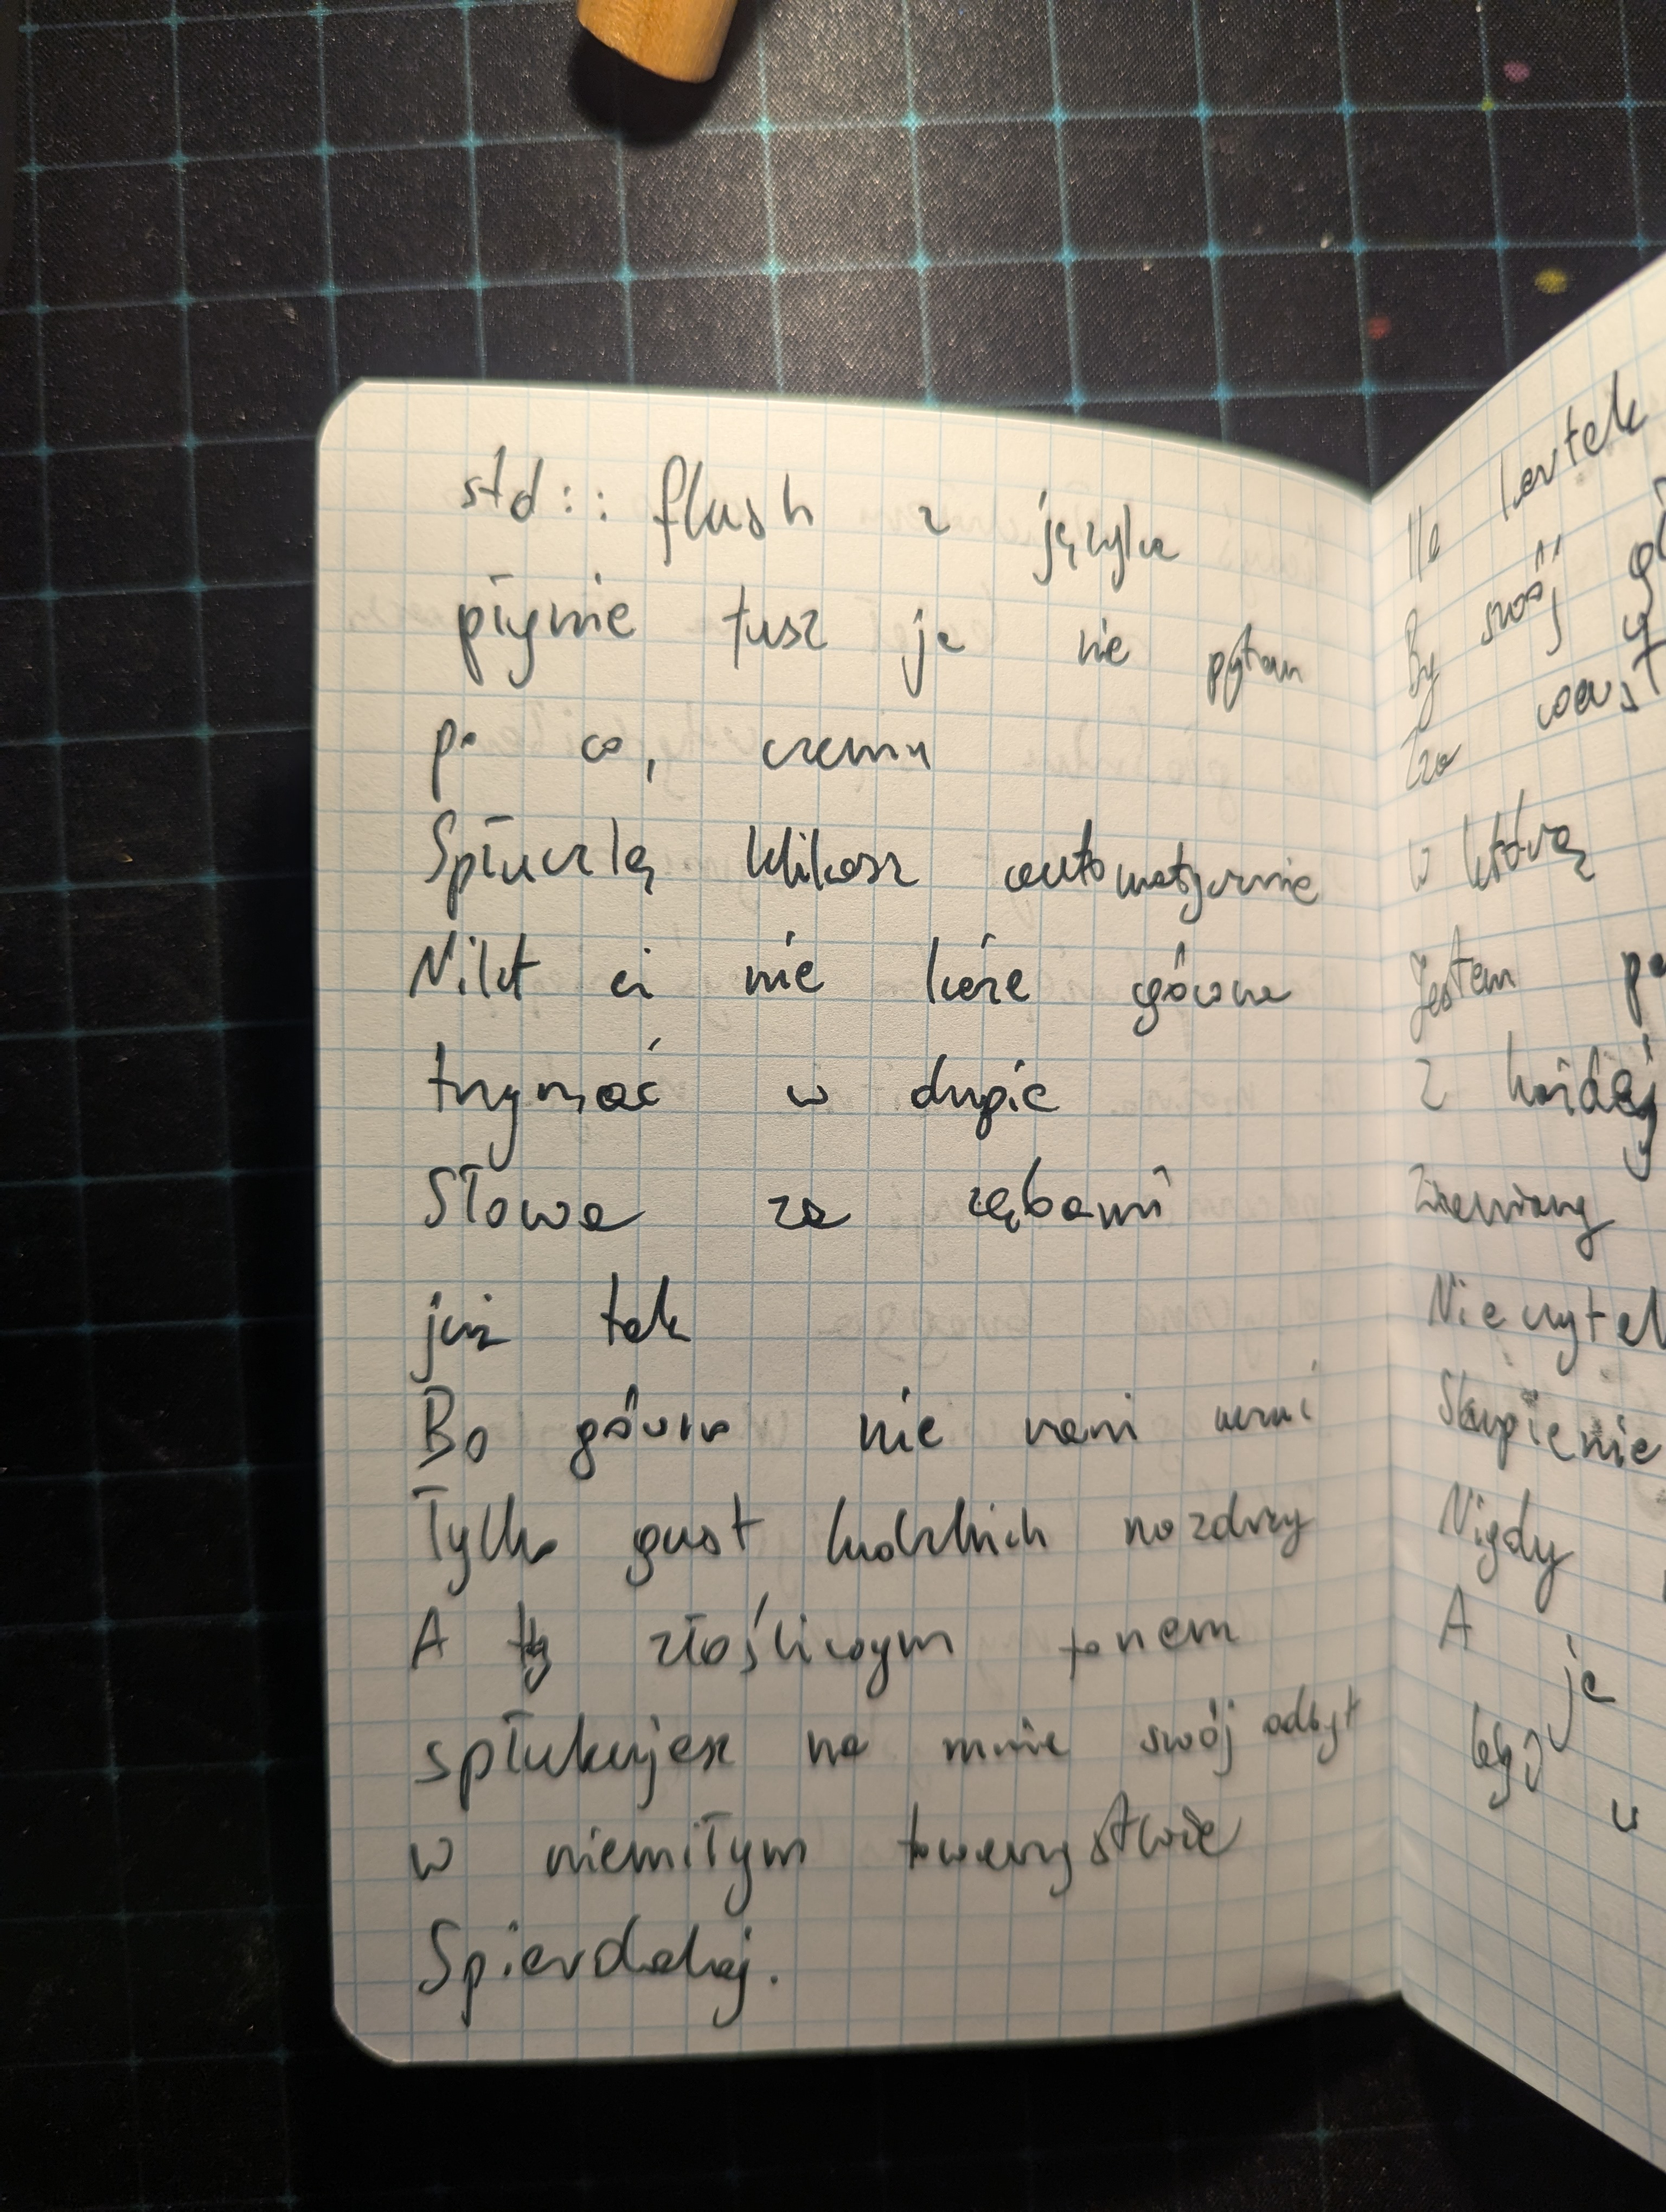 std::flush z języka
płynie tusz ja nie pytam
po co, czemu
Spłuczką klikasz automatycznie
Nikt ci nie każe gówna
trzymać w dupie
Słowa za zębami
już tak
Bo gówno nie rani uczuć
Tylko gust ludzkich nozdrzy
A ty złośliwym tonem
spłukujesz na mnie swój odbyt
w niemiłym towarzystwie
Spierdalaj.
Ile kartek
By swój
w którą
Jestem
Z każdej
Nigdy
A ja